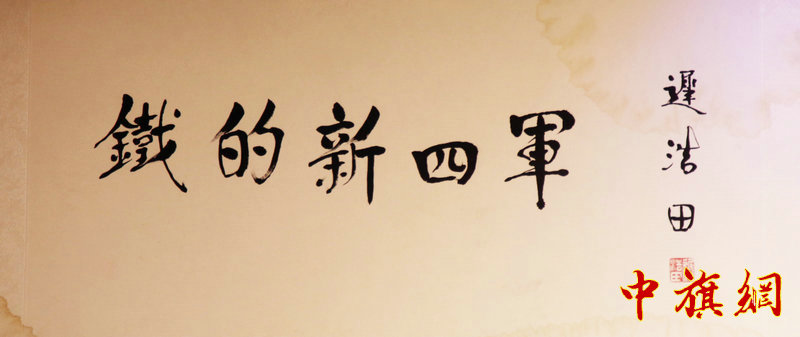 鐵的新四軍
遲浩田
中旗網